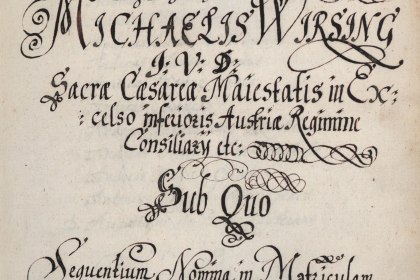 MICHAELIS WIRSING
J: V: D:
Sacræ Cæsareæ Maiestatis in Ex=
=celso inferioris Austriæ Regimine
Consiliarÿ etc:
Sub Quo
Sequentium Nomina in Matriculam